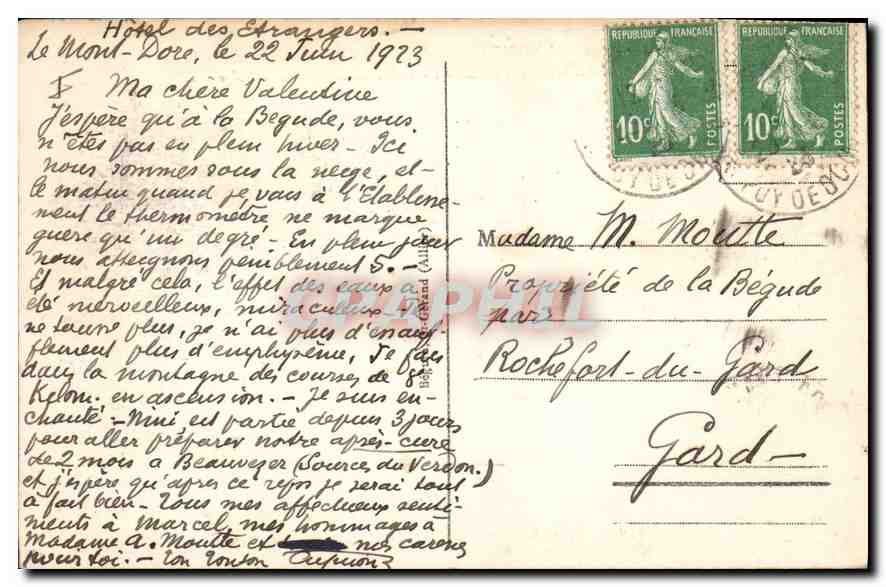 Hôtel des Etrangers. —
Le Mont-Dore, le 22 Juin 1923
Ma chère Valentine
J'espère qu'à la Bégude, vous
n'êtes pas en plein hiver — Ici
nous sommes sous la neige, et
le matin quand je vais à l'Etablisse-
ment le thermomètre ne marque
guère qu'un degré — En plein jour
nous atteignons péniblement 5. —
Et malgré cela, l'effet des eaux a
été merveilleux, miraculeux — Je
ne tousse plus, je n'ai plus d'essouf-
flement plus d'emphysème, Je fais
dans la montagne des courses de 8
Kilom. en ascension. — Je suis en-
chanté — Nini est partie depuis 3 jours
pour aller préparer notre après-cure
de 2 mois à Beauvezer (Sources du Verdon.)
et j'espère qu'après ce repos je serai tout
à fait bien — Tous mes affectueux senti-
ments à Marcel, mes hommages à
Madame A. Moutte et nos caresses
pour toi. — Ton Tonton
Madame M. Moutte
Propriété de la Bégude
par
Rochefort-du-Gard
Gard —
REPUBLIQUE FRANÇAISE
10c
POSTES
REPUBLIQUE FRANÇAISE
10c
POSTES
PUY DE DOME
(Allier)
CPAPHIL